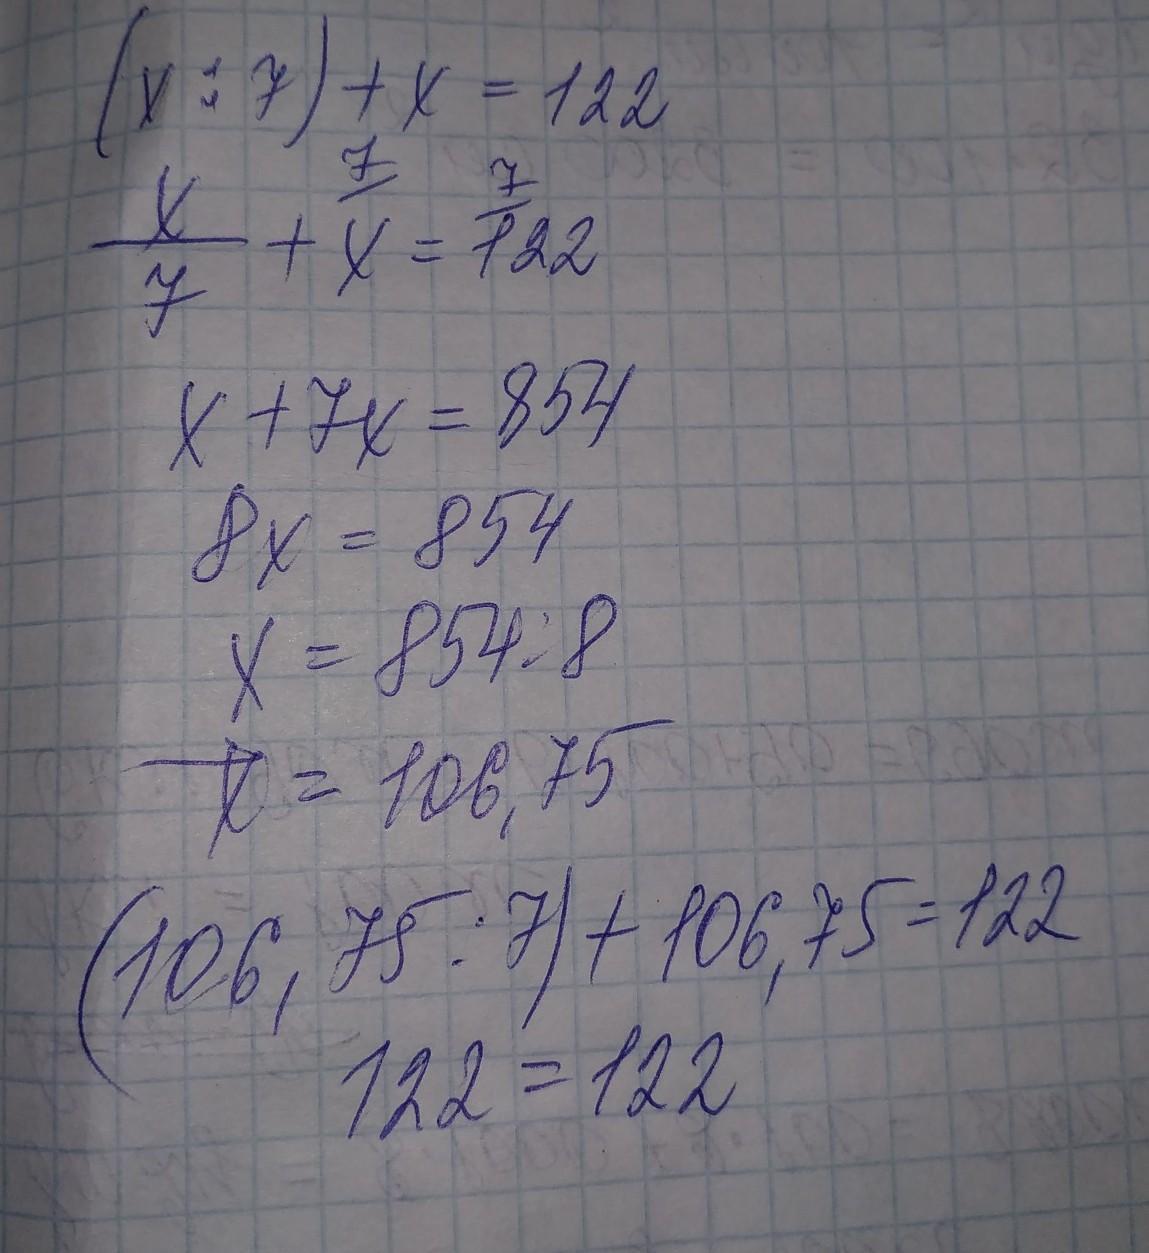 (x : 7) + x = 122
x/7 + x 7/ = 122 7/
x + 7x = 854
8x = 854
x = 854 : 8
x = 106,75
(106,75 : 7) + 106,75 = 122
122 = 122